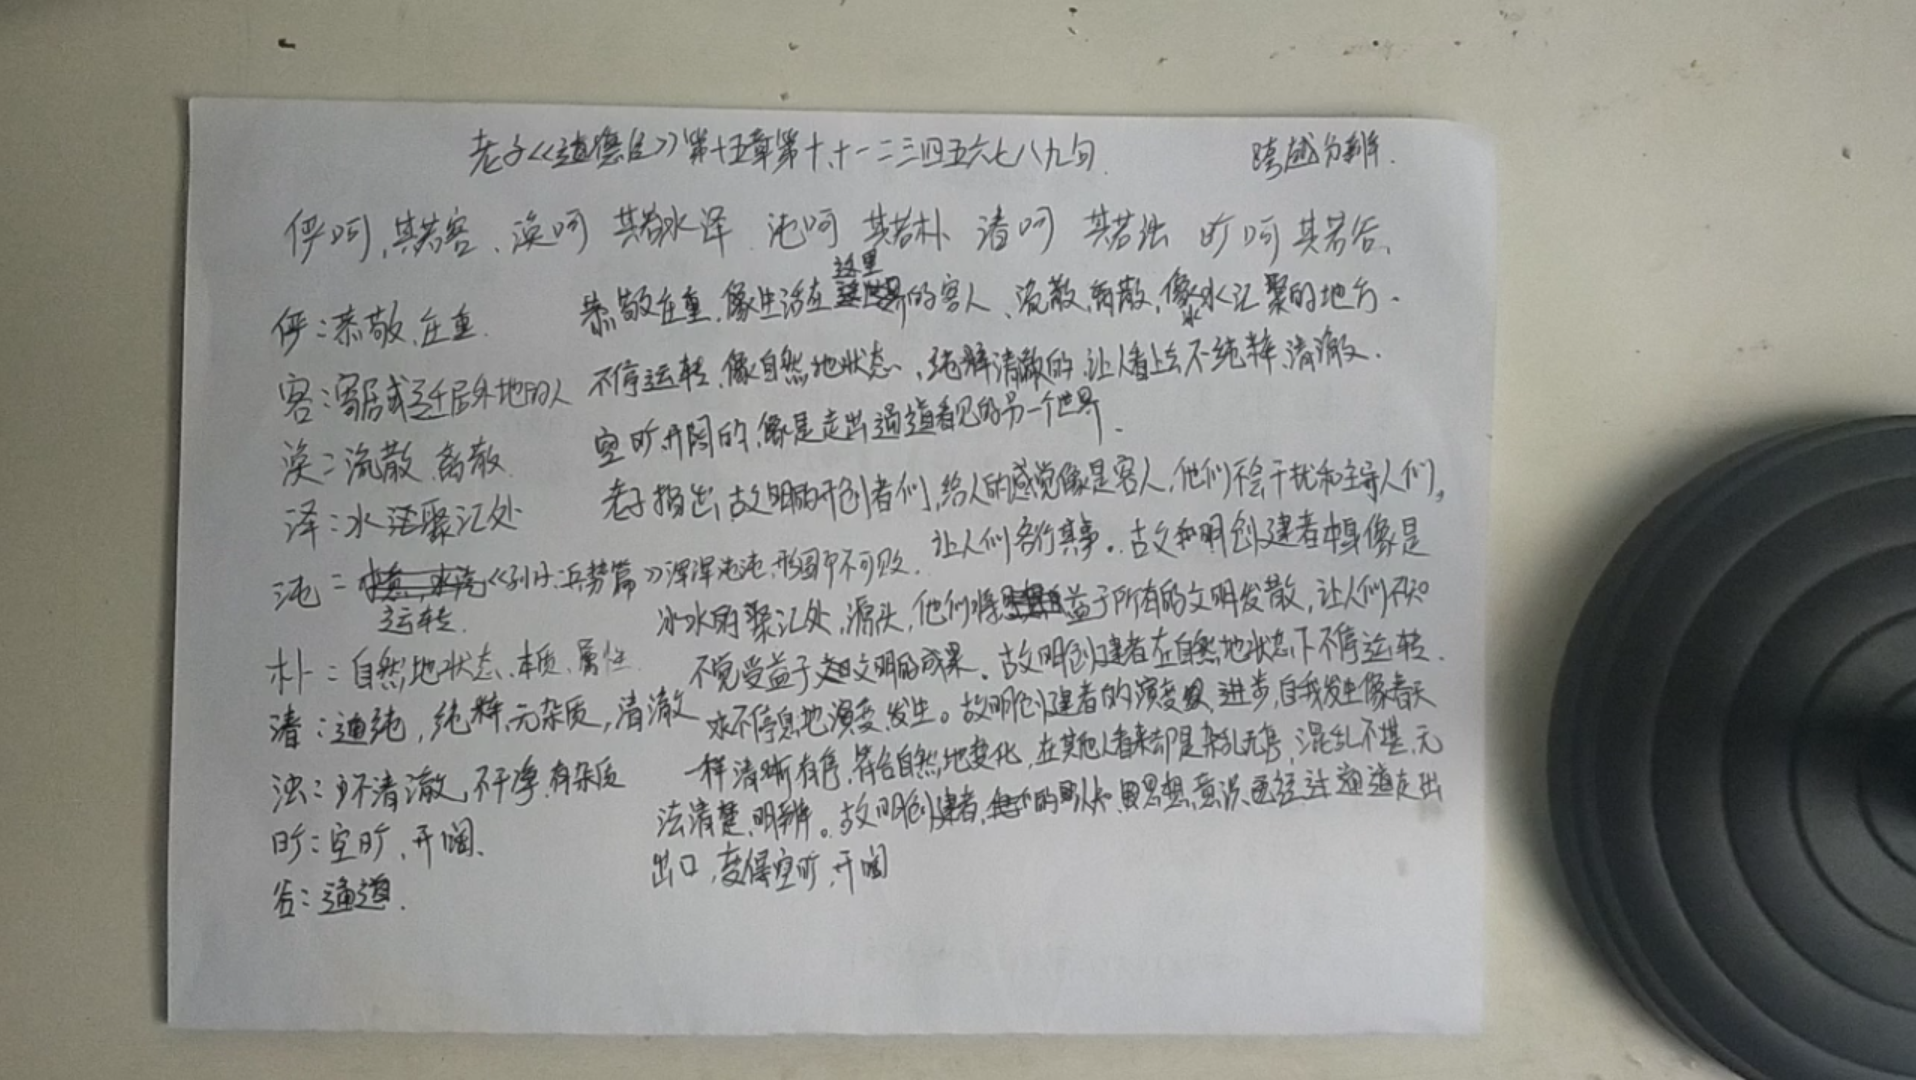 老子《道德经》第十五章第十、十一二三四五六七八九句. 跨越分辨.
俨呵,其若客、涣呵 其若水泽 沌呵 其若朴 渚呵 其若浊 旷呵 其若谷、
俨:恭敬、庄重.
客:寄居或迁居外地的人
涣:流散、离散.
泽:水 聚汇处
沌: 《孙子·兵势篇》浑浑沌沌,形圆而不可败.
运转.
朴:自然地状态、本质、属性.
渚:通纯,纯粹,无杂质,清澈
浊:不清澈,不干净,有杂质
旷:空旷、开阔、
谷:通道.
这里
恭敬庄重,像生活在 的客人、流散,离散,像水汇聚的地方.
不停运转,像自然地状态、纯粹清澈的,让人看上去不纯粹、清澈.
空旷开阔的,像是走出通道看见的另一个世界.
老子指出,古文明的开创者们,给人的感觉像是客人,他们不会干扰和主导人们,
让人们各行其事。古文明创建者本身像是
冰水的聚汇处,源头,他们将 益于所有的文明发散,让人们不知
不觉受益于 文明的成果。古文明创建者在自然地状态下不停运转.
永不停息地演变,发生。古文明创建者的演变,进步,自我发生像春天
一样清晰有序,符合自然地变化,在其他人看来却是杂乱无序,混乱不堪,无
法清楚、明辨。古文明创建者, 的认知,思想,意识,已经过通道走出
出口,变得空旷,开阔